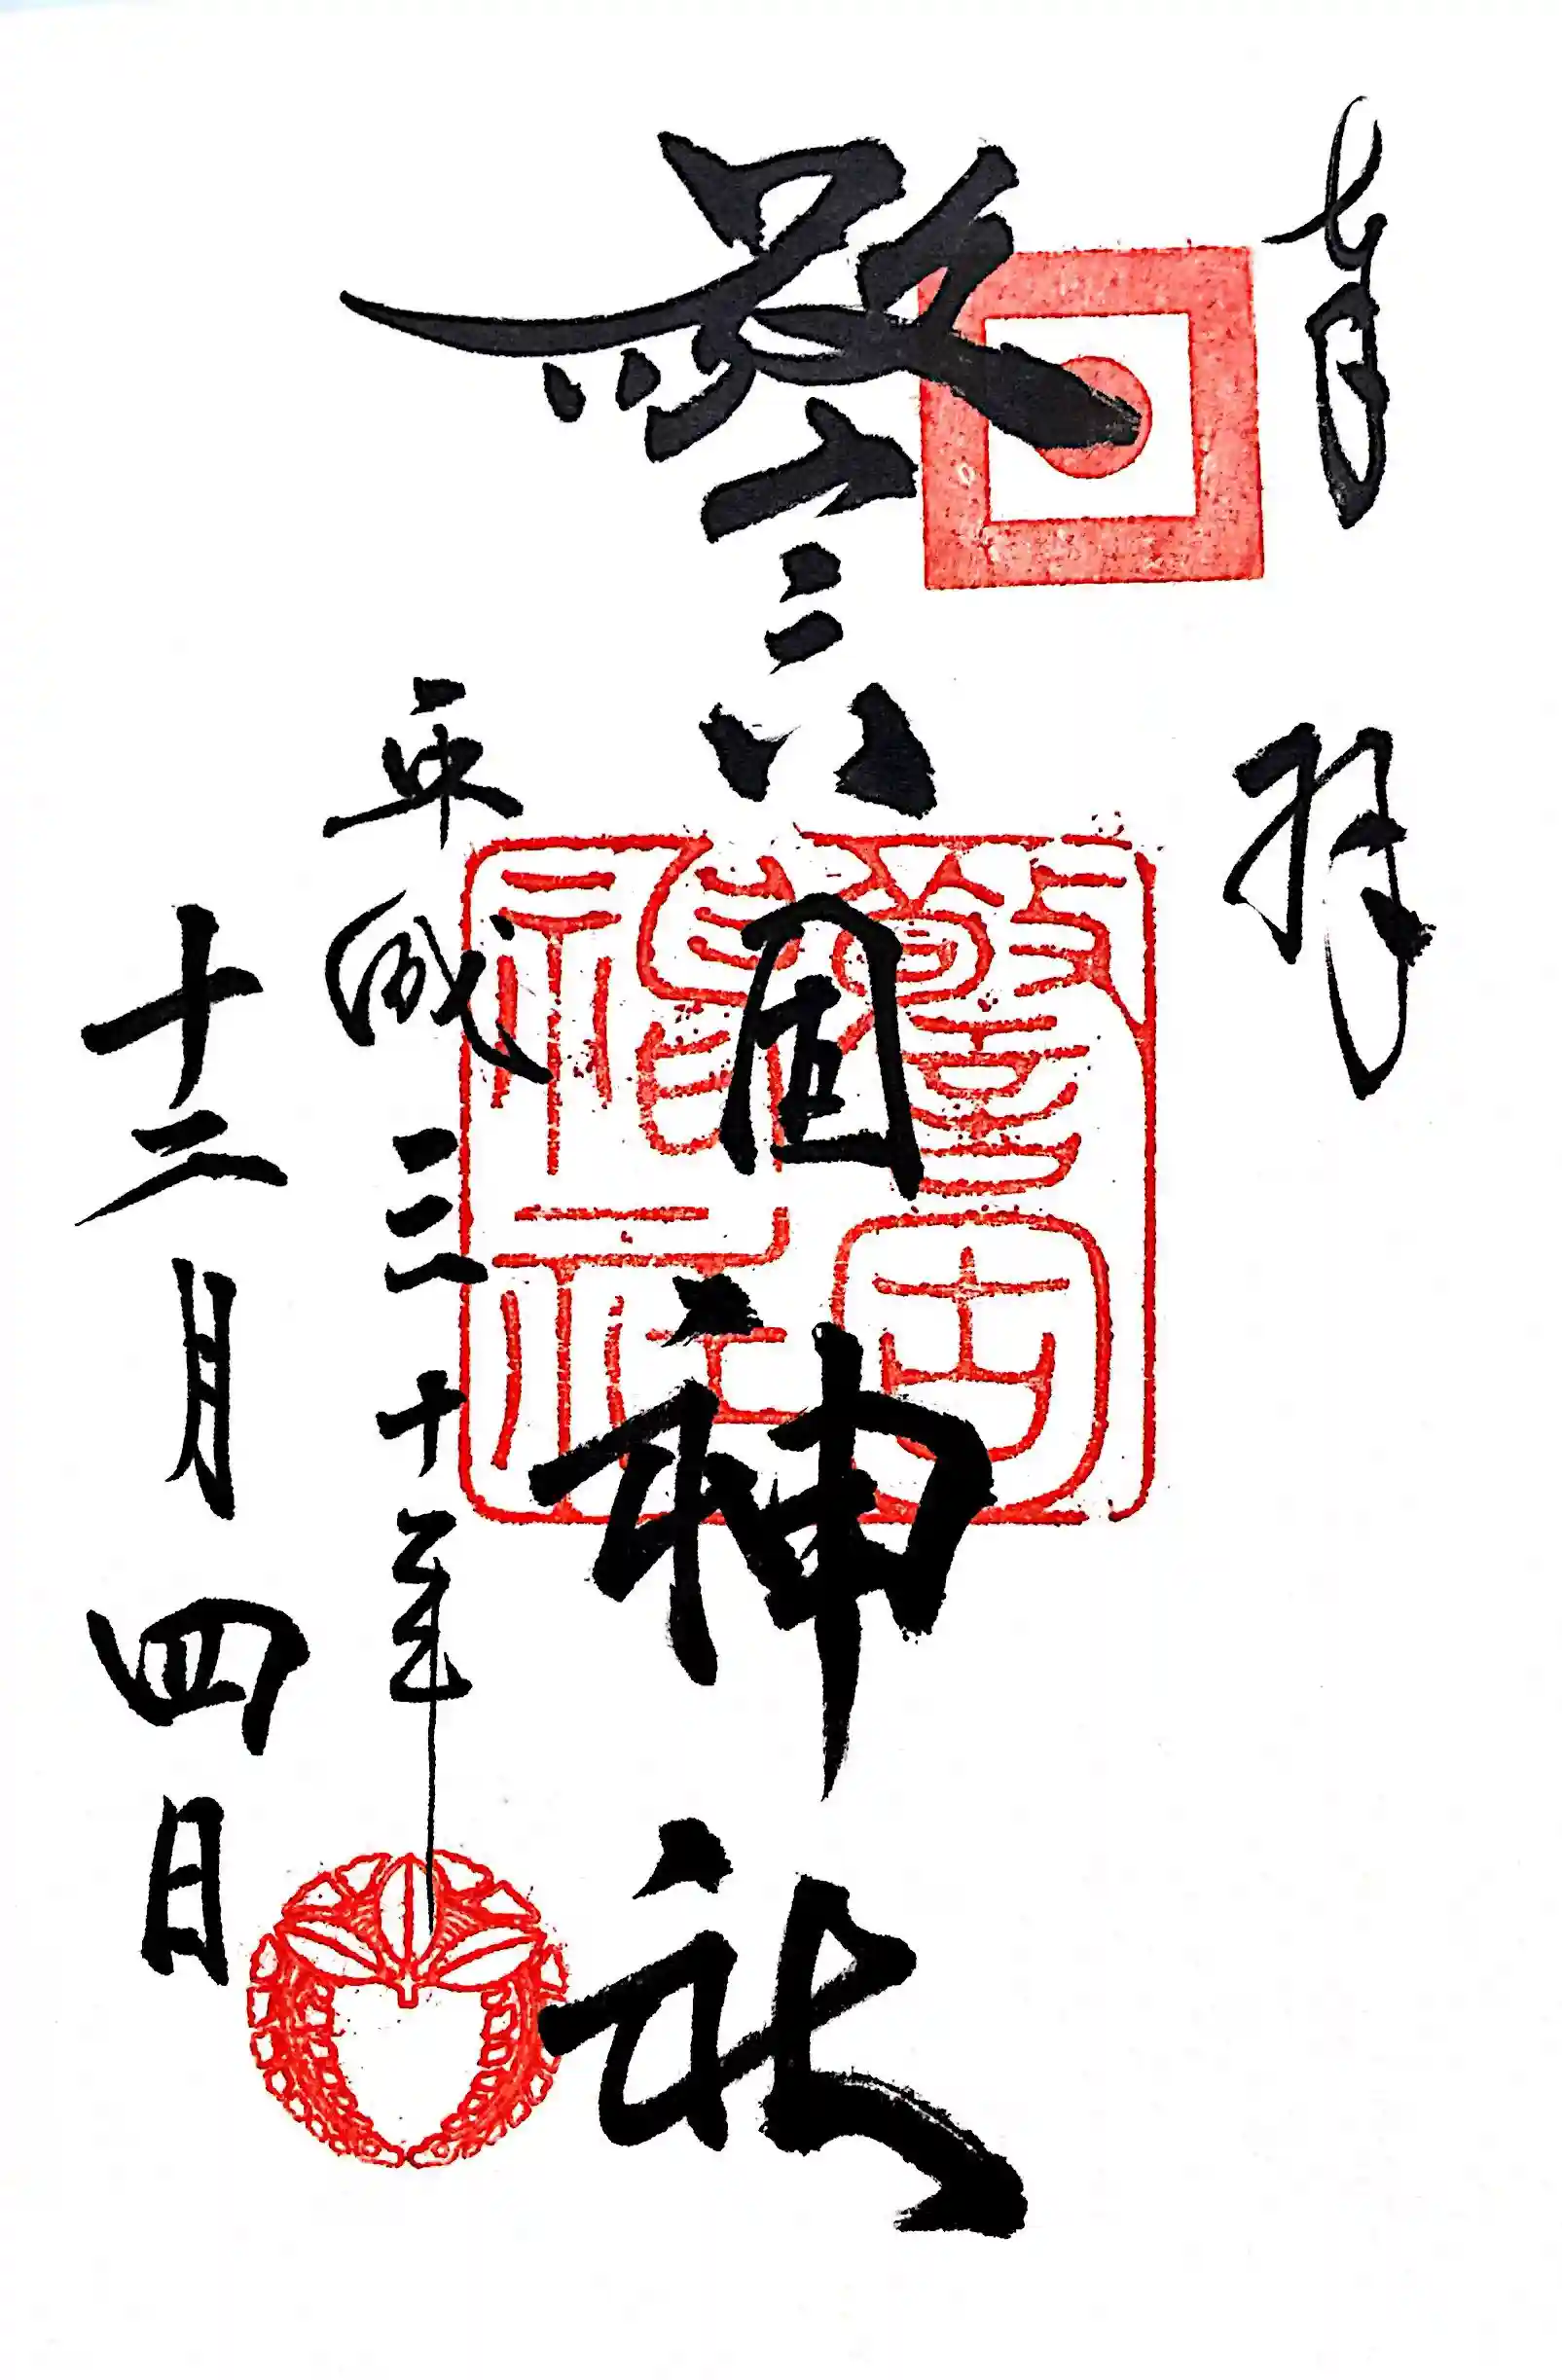 奉拝
警固神社
平成三十年
十二月四日
警固神社